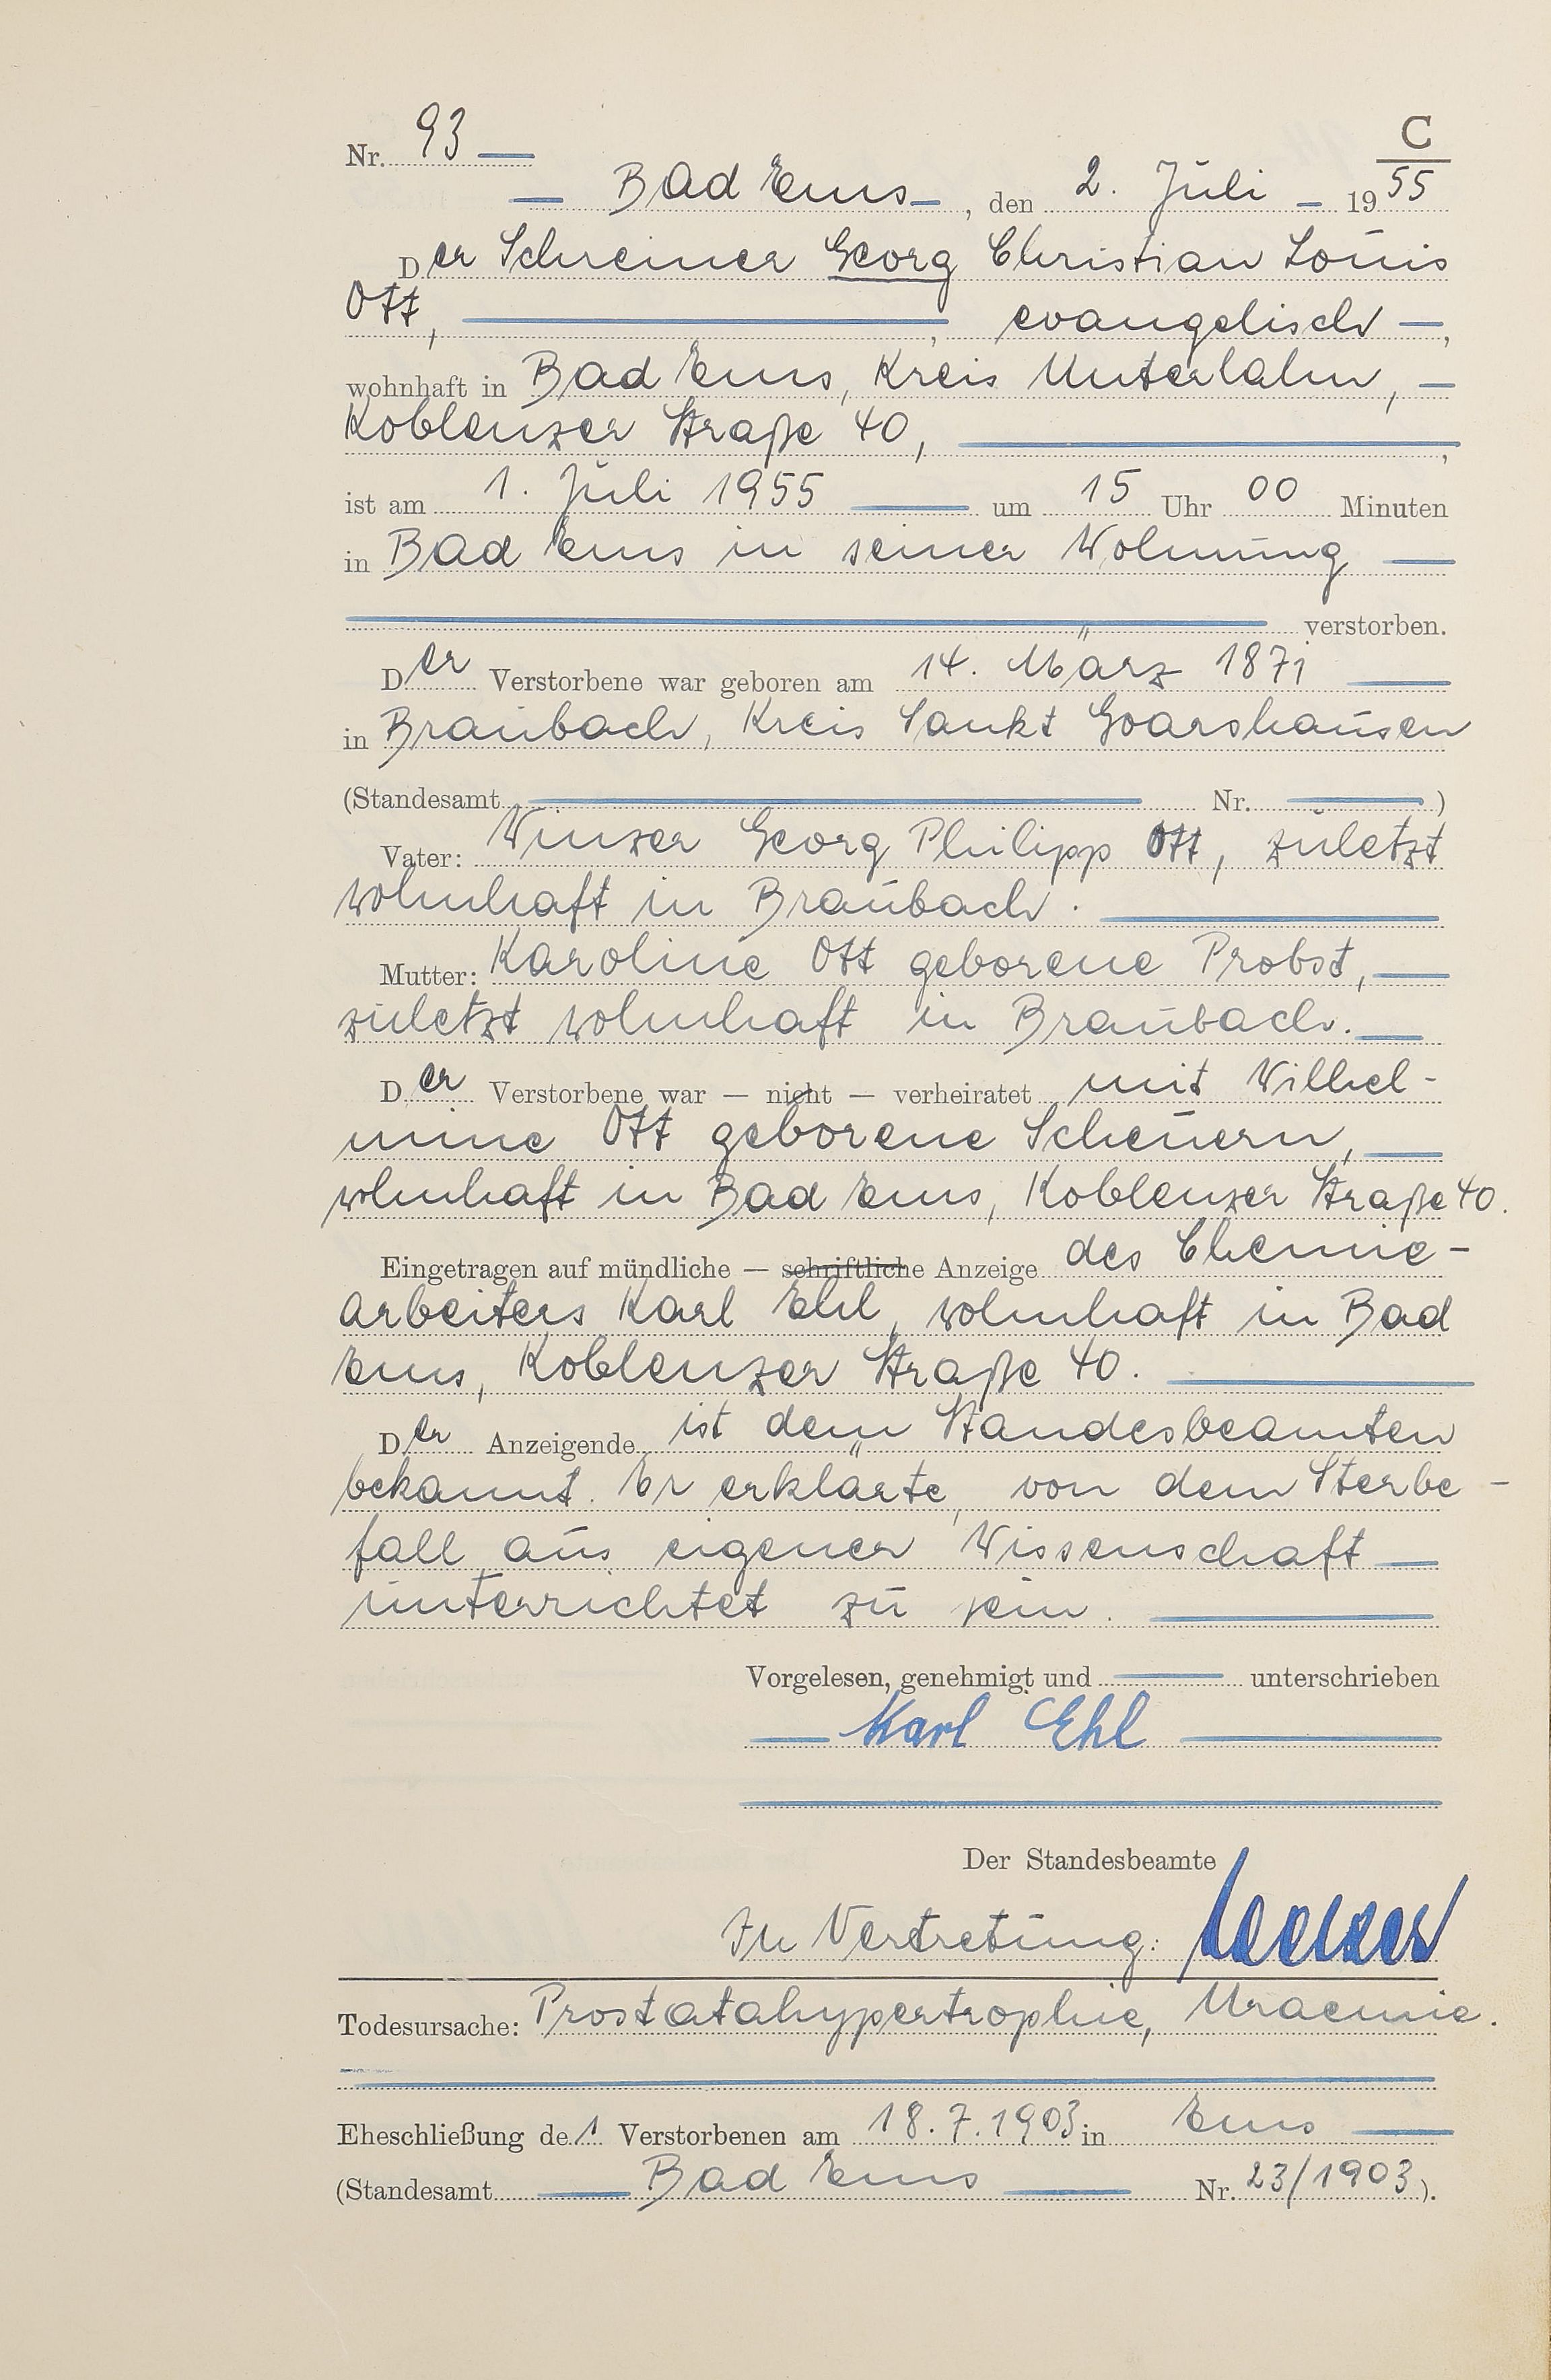 C
Nr. 93
Bad Ems, den 2. Juli 1955
Der Schreiner Georg Christian Louis
Ott, , evangelisch ,
wohnhaft in Bad Ems, Kreis Unterlahn,
Koblenzer Straße 40, ,
ist am 1. Juli 1955 um 15 Uhr 00 Minuten
in Bad Ems in seiner Wohnung
verstorben.
Der Verstorbene war geboren am 14. März 1871
in Braubach, Kreis Sankt Goarshausen
(Standesamt Nr. )
Vater: Winzer Georg Philipp Ott, zuletzt
wohnhaft in Braubach.
Mutter: Karoline Ott geborene Probst,
zuletzt wohnhaft in Braubach.
Der Verstorbene war — nicht — verheiratet mit Wilhel-
mine Ott geborene Scheuern,
wohnhaft in Bad Ems, Koblenzer Straße 40.
Eingetragen auf mündliche — schriftliche Anzeige des Chemie-
arbeiters Karl Ehl, wohnhaft in Bad
Ems, Koblenzer Straße 40.
Der Anzeigende ist dem Standesbeamten
bekannt. Er erklärte, von dem Sterbe-
fall aus eigener Wissenschaft
unterrichtet zu sein.
Vorgelesen, genehmigt und unterschrieben
Karl Ehl
Der Standesbeamte
In Vertretung:
Todesursache: Prostatahypertrophie, Uraemie.
Eheschließung des Verstorbenen am 18.7.1903 in Ems
(Standesamt Bad Ems Nr. 23/1903).